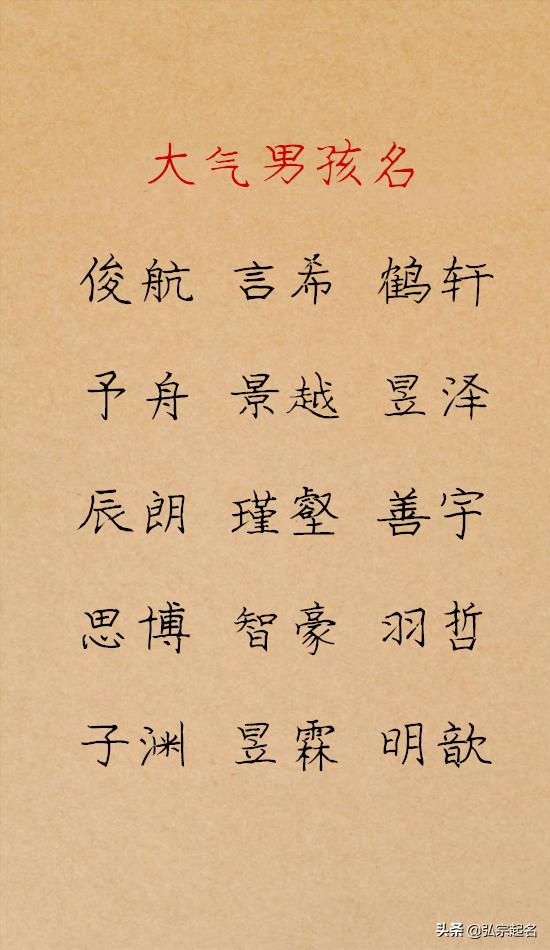 大气男孩名
俊航 言希 鹤轩
予舟 景越 昱泽
辰朗 瑾壑 善宇
思博 智豪 羽哲
子渊 昱霖 明歆
头条 @弘宗起名